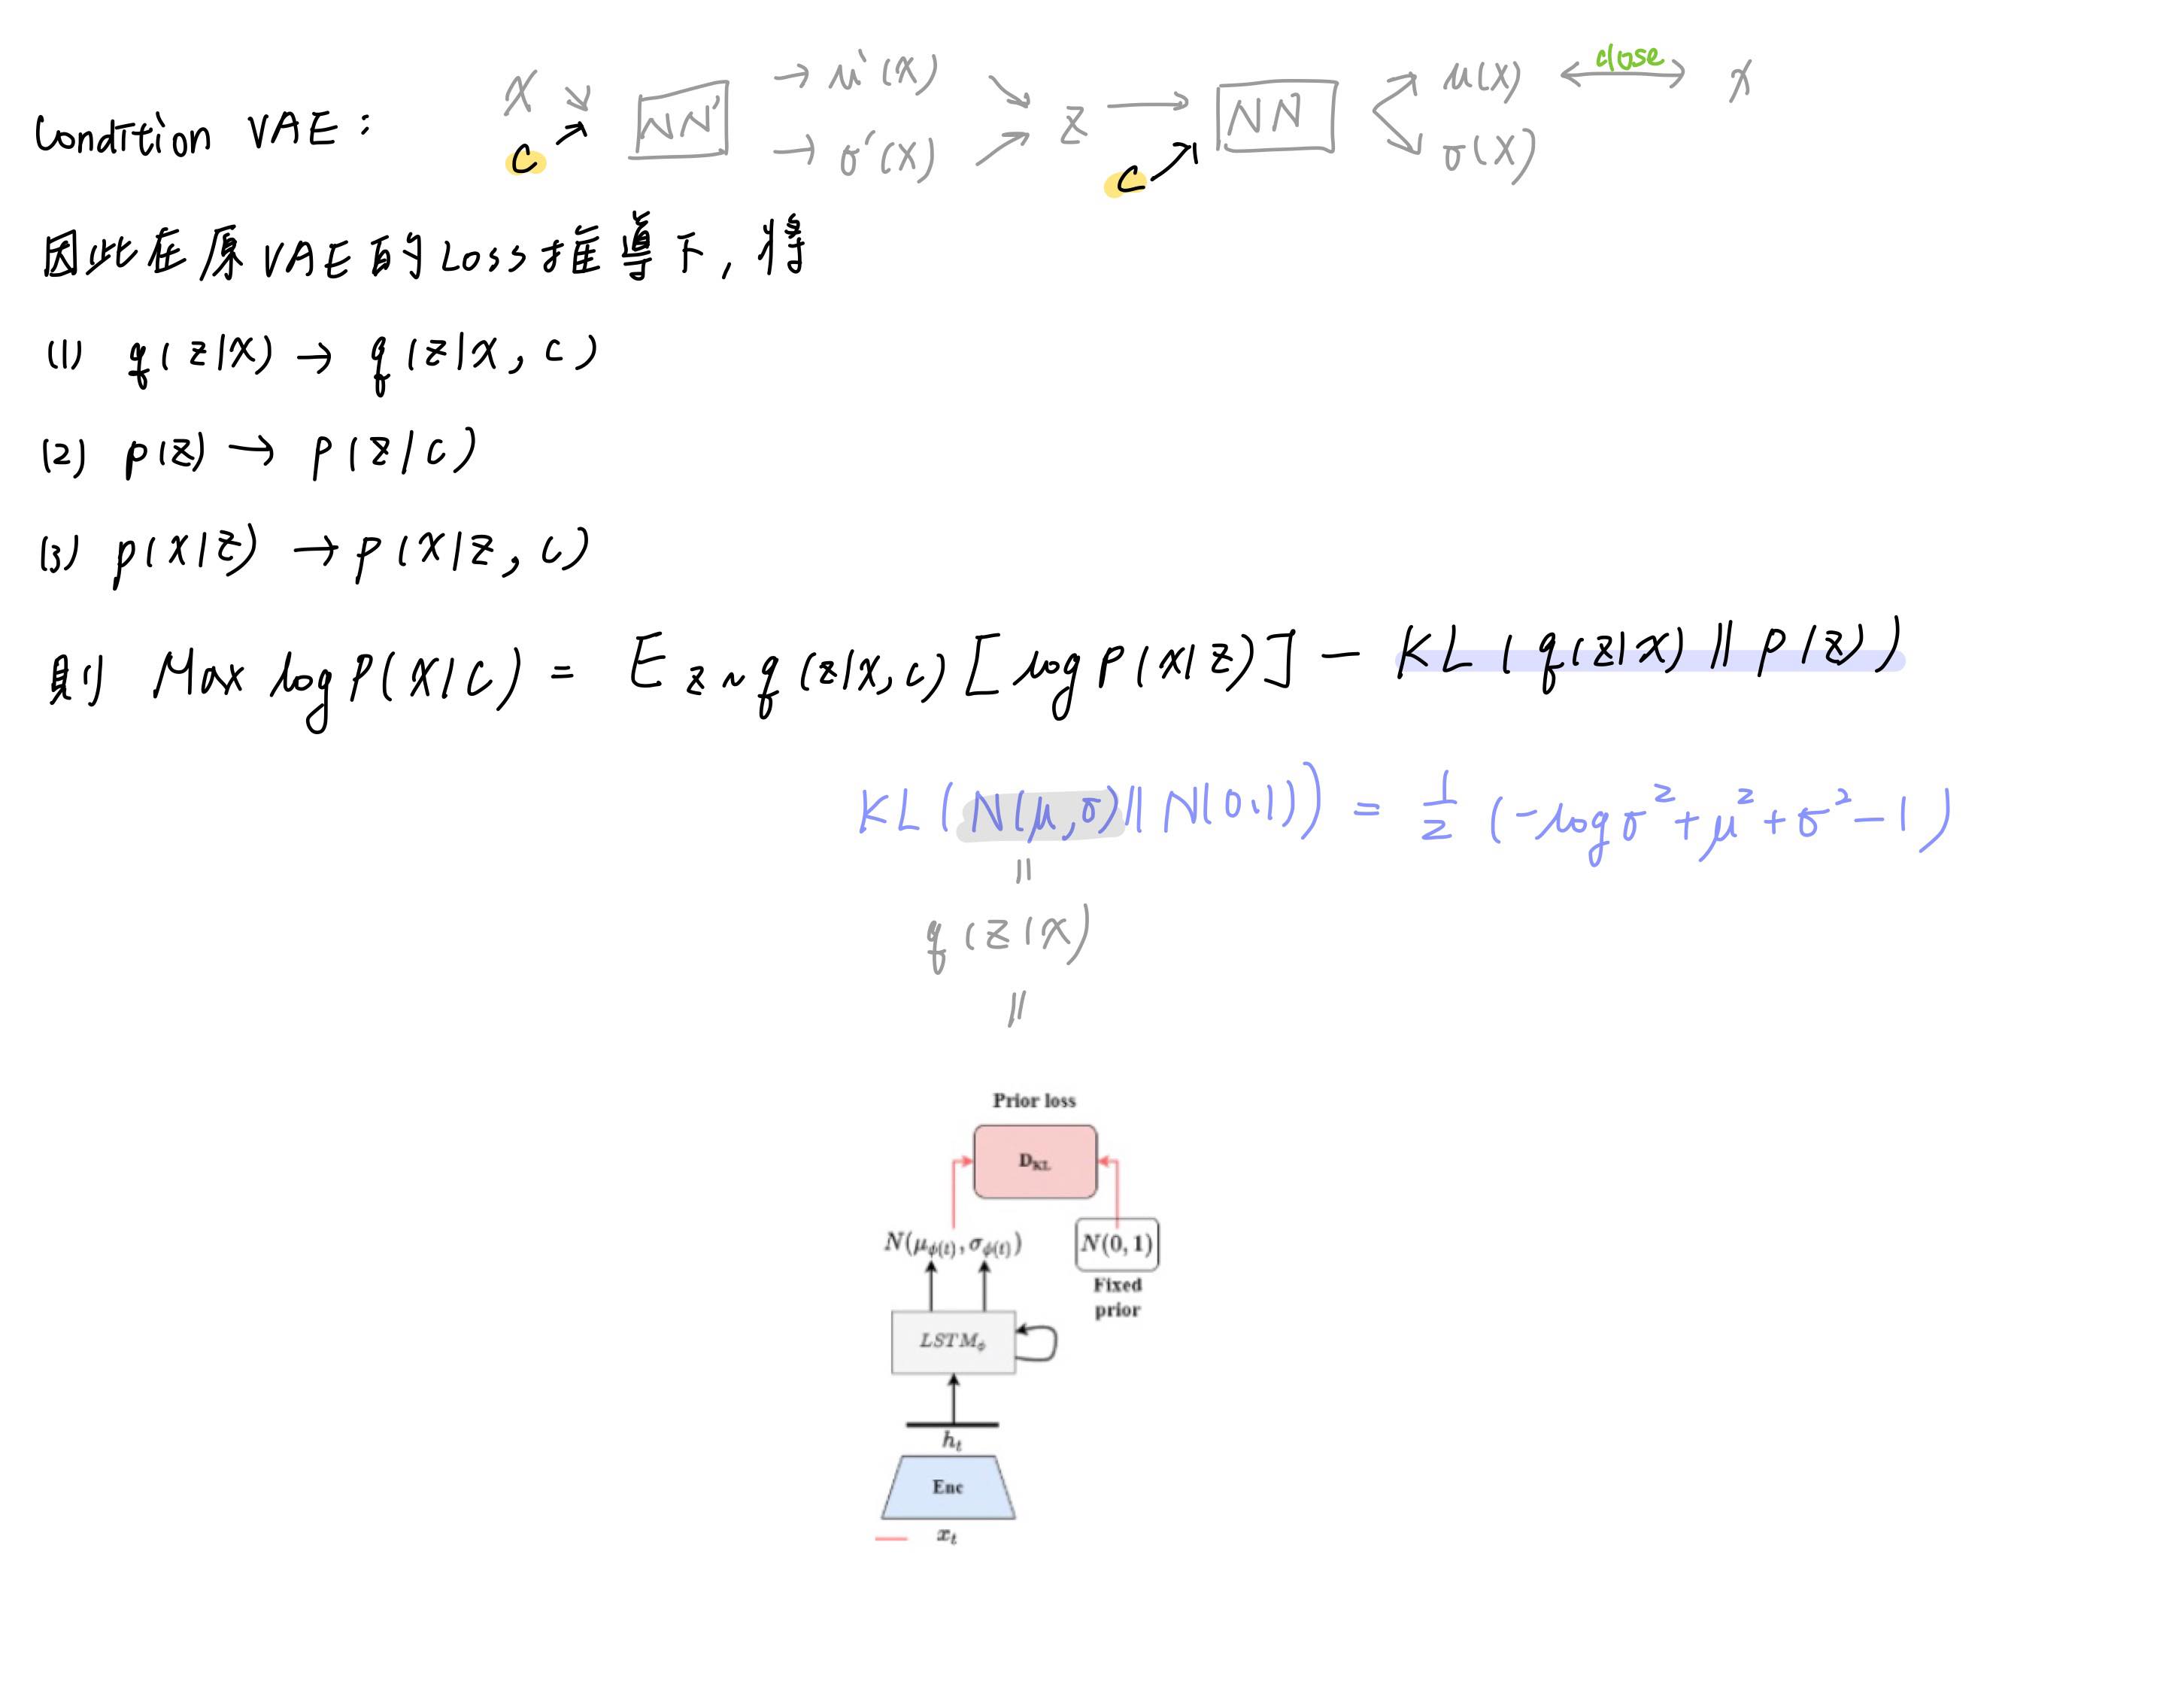 Condition VAE : X C NN' → μ'(X) → σ'(X) Z C NN μ(X) σ(X) close X
因此在原 VAE 的 Loss 推導下, 將
(1) q(z|X) → q(z|X, C)
(2) p(z) → p(z|C)
(3) p(X|z) → p(X|z, C)
則 Max log P(X|C) = E z~q(z|X,C) [log P(X|z)] − KL(q(z|X) || P(z))
KL(N(μ,σ) || N(0,1)) = 1/2 (-log σ² + μ² + σ² − 1)
=
q(z|X)
=
Prior loss
D_KL
N(μ_φ(t), σ_φ(t)) N(0, 1)
Fixed
prior
LSTM_φ
h_t
Enc
x_t